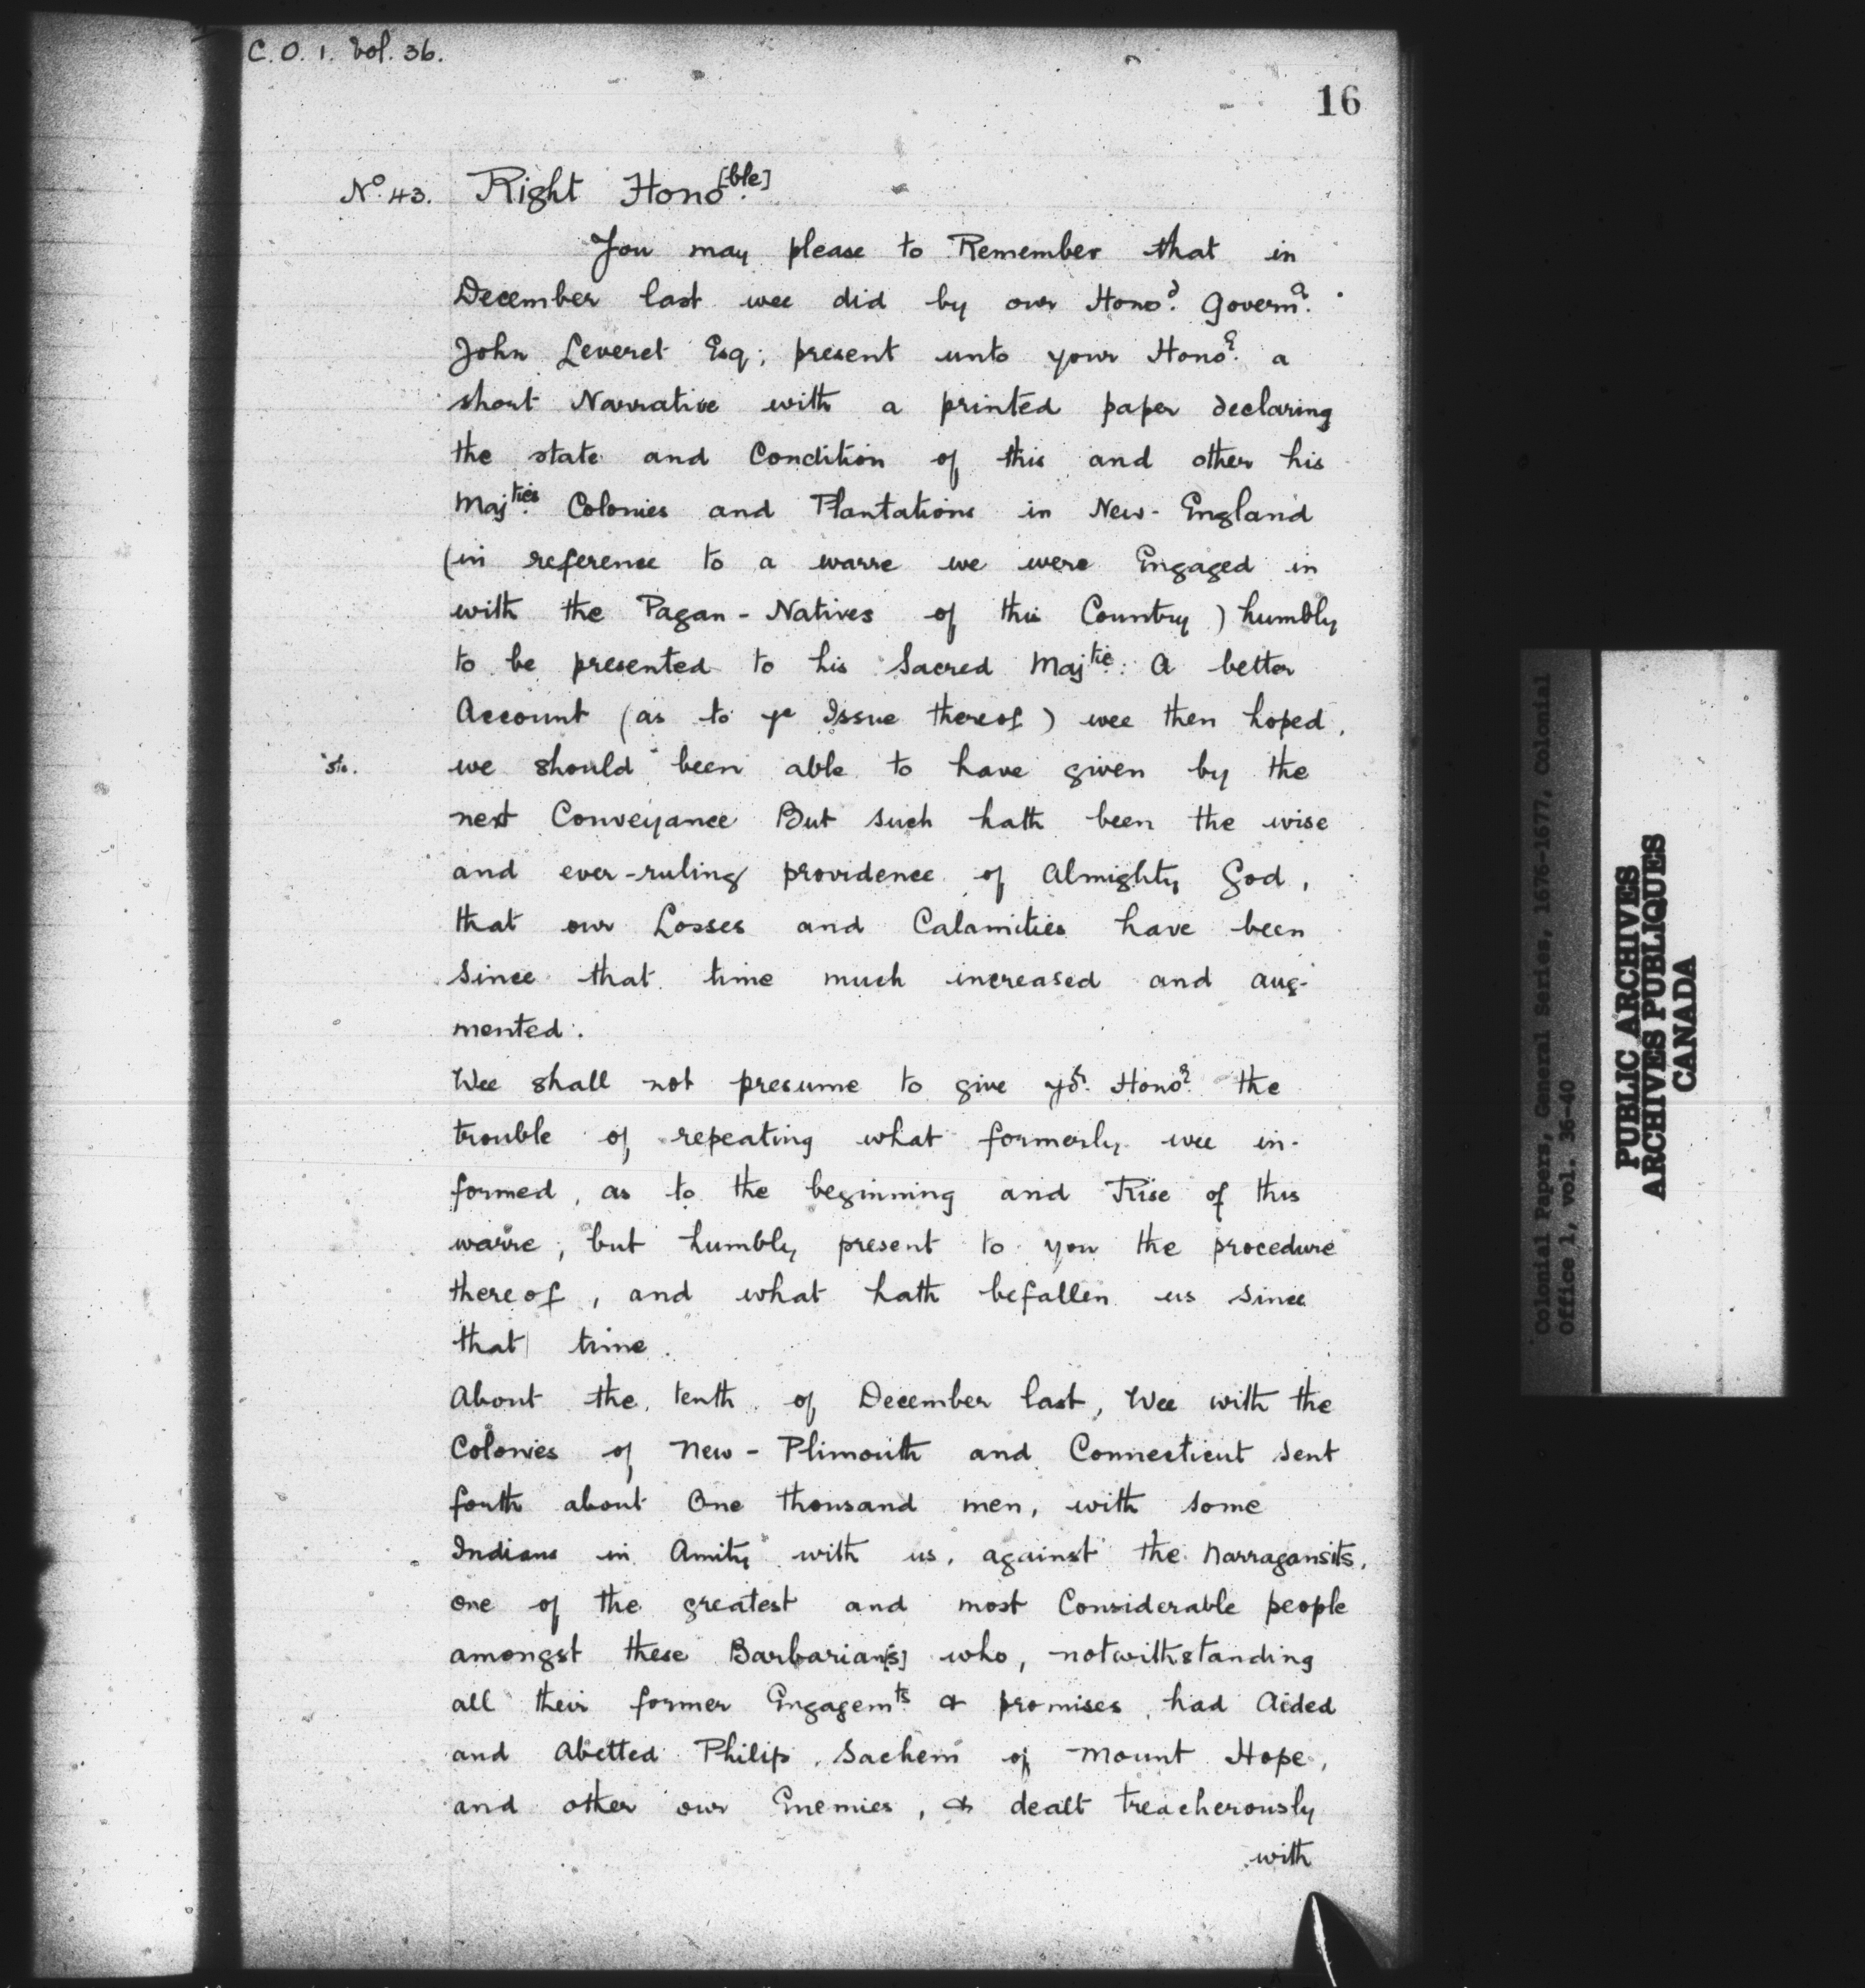 C. O. 1. Vol. 36.
16
No. 43. Right Hono[ble].
You may please to Remember that in
December last wee did by our Honod. Governr.
John Leveret Esq; present unto your Honor. a
short Narrative with a printed paper declaring
the state and Condition of this and other his
Majties. Colonies and Plantations in New-England
(in reference to a warre we were Engaged in
with the Pagan-Natives of this Country) humbly
to be presented to his Sacred Majtie: A better
Account (as to ye Issue thereof) wee then hoped,
sic. we should been able to have given by the
next Conveyance But such hath been the wise
and ever-ruling providence of Almighty God,
that our Losses and Calamities have been
since that time much increased and aug-
mented.
Wee shall not presume to give yor. Honor. the
trouble of repeating what formerly wee in-
formed, as to the beginning and Rise of this
warre, but humbly present to you the procedure
thereof, and what hath befallen us since
that time.
About the tenth of December last, Wee with the
Colonies of New-Plimouth and Connecticut sent
forth about One thousand men, with some
Indians in Amity with us, against the Narragansits,
one of the greatest and most Considerable people
amongst these Barbarian[s] who, notwithstanding
all their former Engagemts & promises, had Aided
and Abetted Philip, Sachem of Mount Hope,
and other our Enemies, & dealt treacherously
with
Colonial Papers, General Series, 1676-1677, Colonial
Office 1, vol. 36-40
PUBLIC ARCHIVES
ARCHIVES PUBLIQUES
CANADA